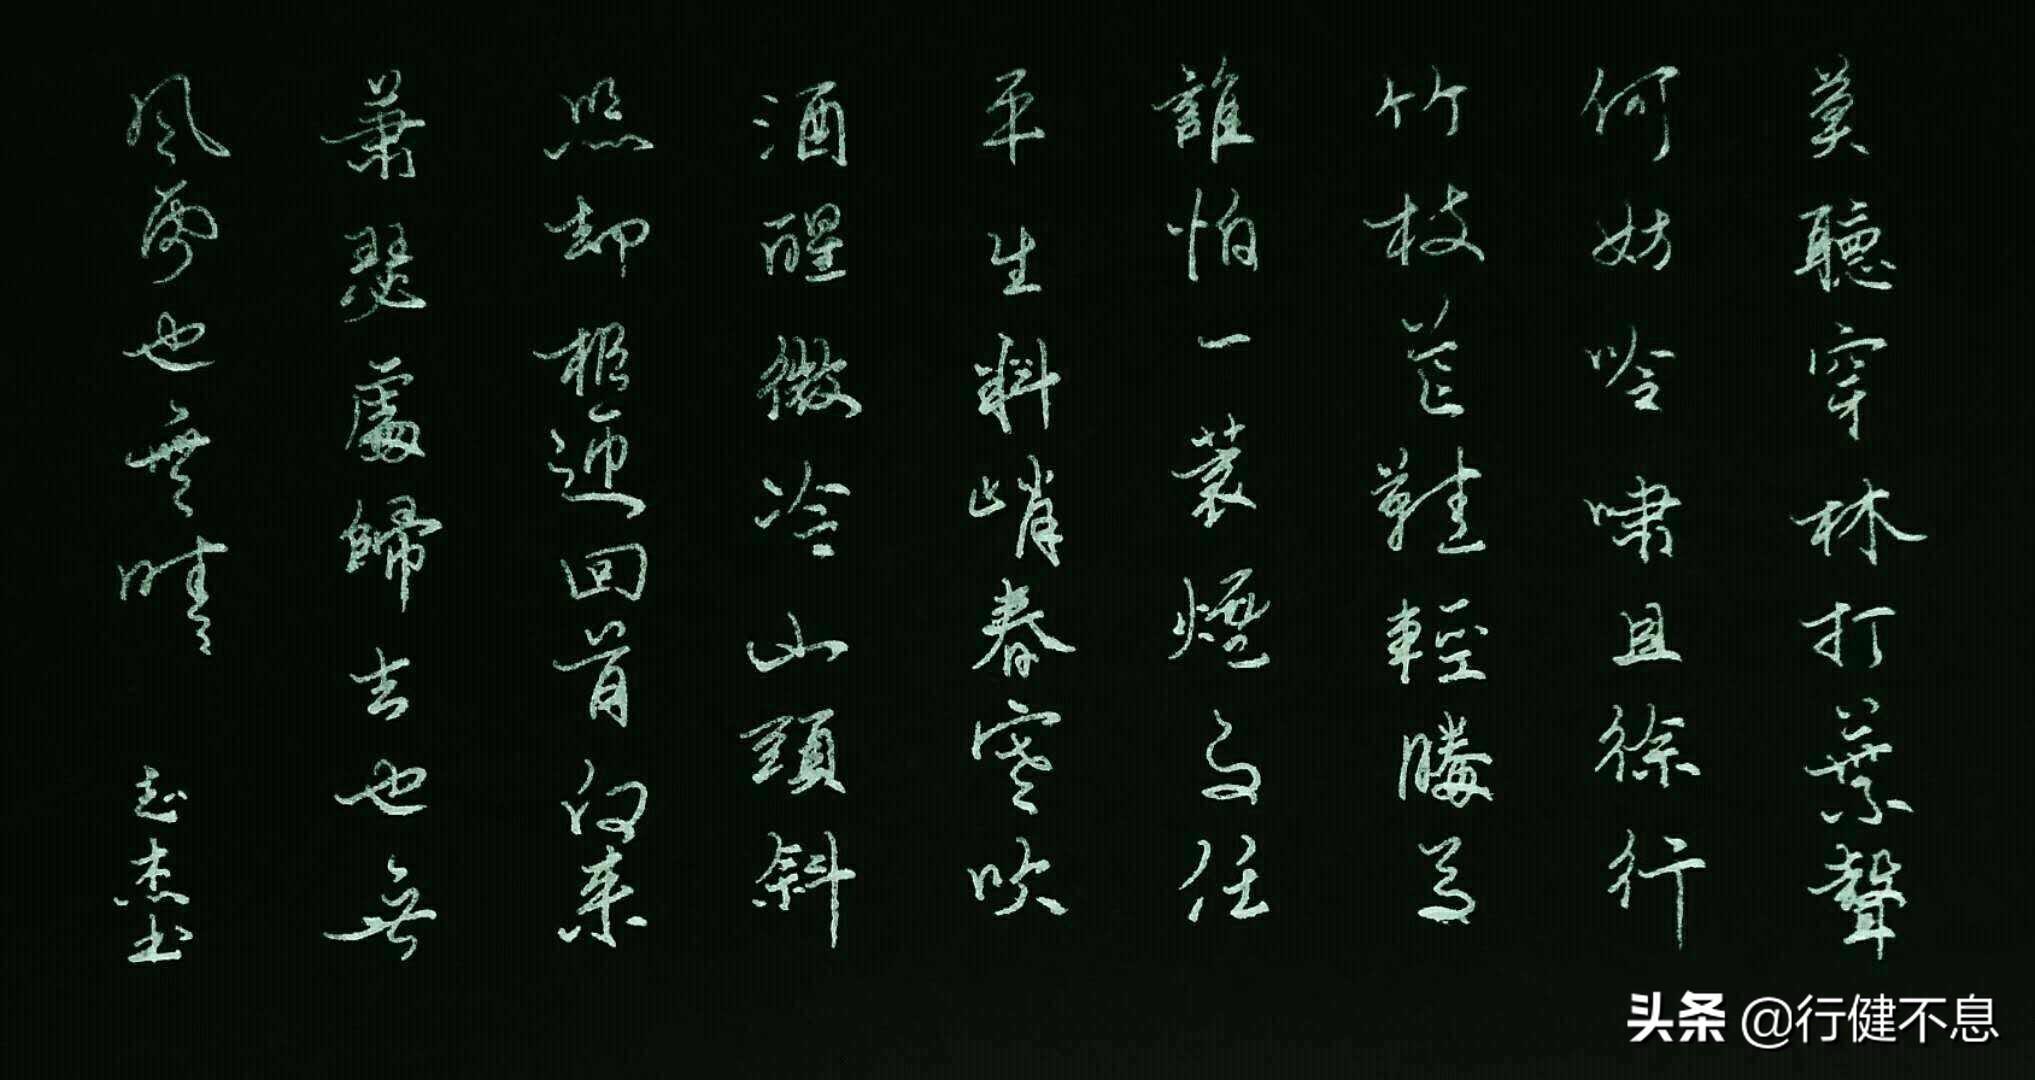 莫聽穿林打葉聲
何妨吟啸且徐行
竹枝芒鞋輕勝馬
誰怕一蓑煙雨任
平生料峭春寒吹
酒醒微冷山頭斜
照却相迎回首向来
萧瑟處歸去也無
風雨也無晴
志杰书
头条 @行健不息